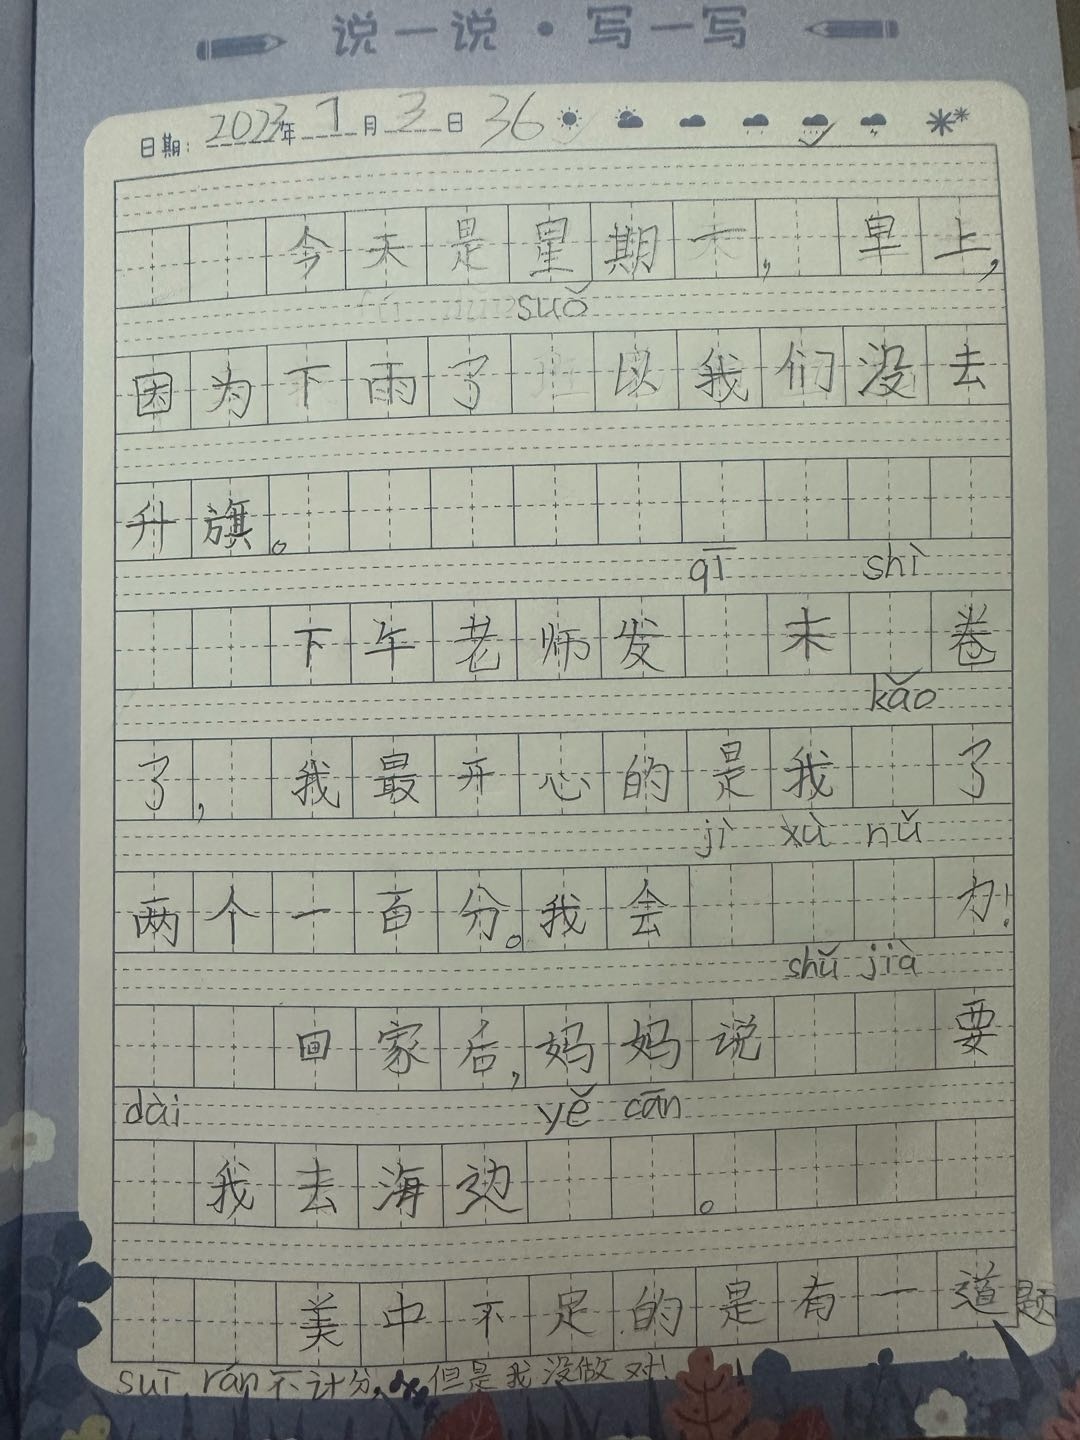 说一说·写一写
日期：2023年7月3日 36
今天是星期一，早上，
suǒ
因为下雨了 以我们没去
升旗。
qī shì
下午老师发 末 卷
kǎo
了，我最开心的是我 了
jì xù nǔ
两个一百分。我会 力！
shǔ jià
回家后，妈妈说 要
dài yě cān
我去海边 。
美中不足的是有一道题
suī rán不计分，但是我没做对！